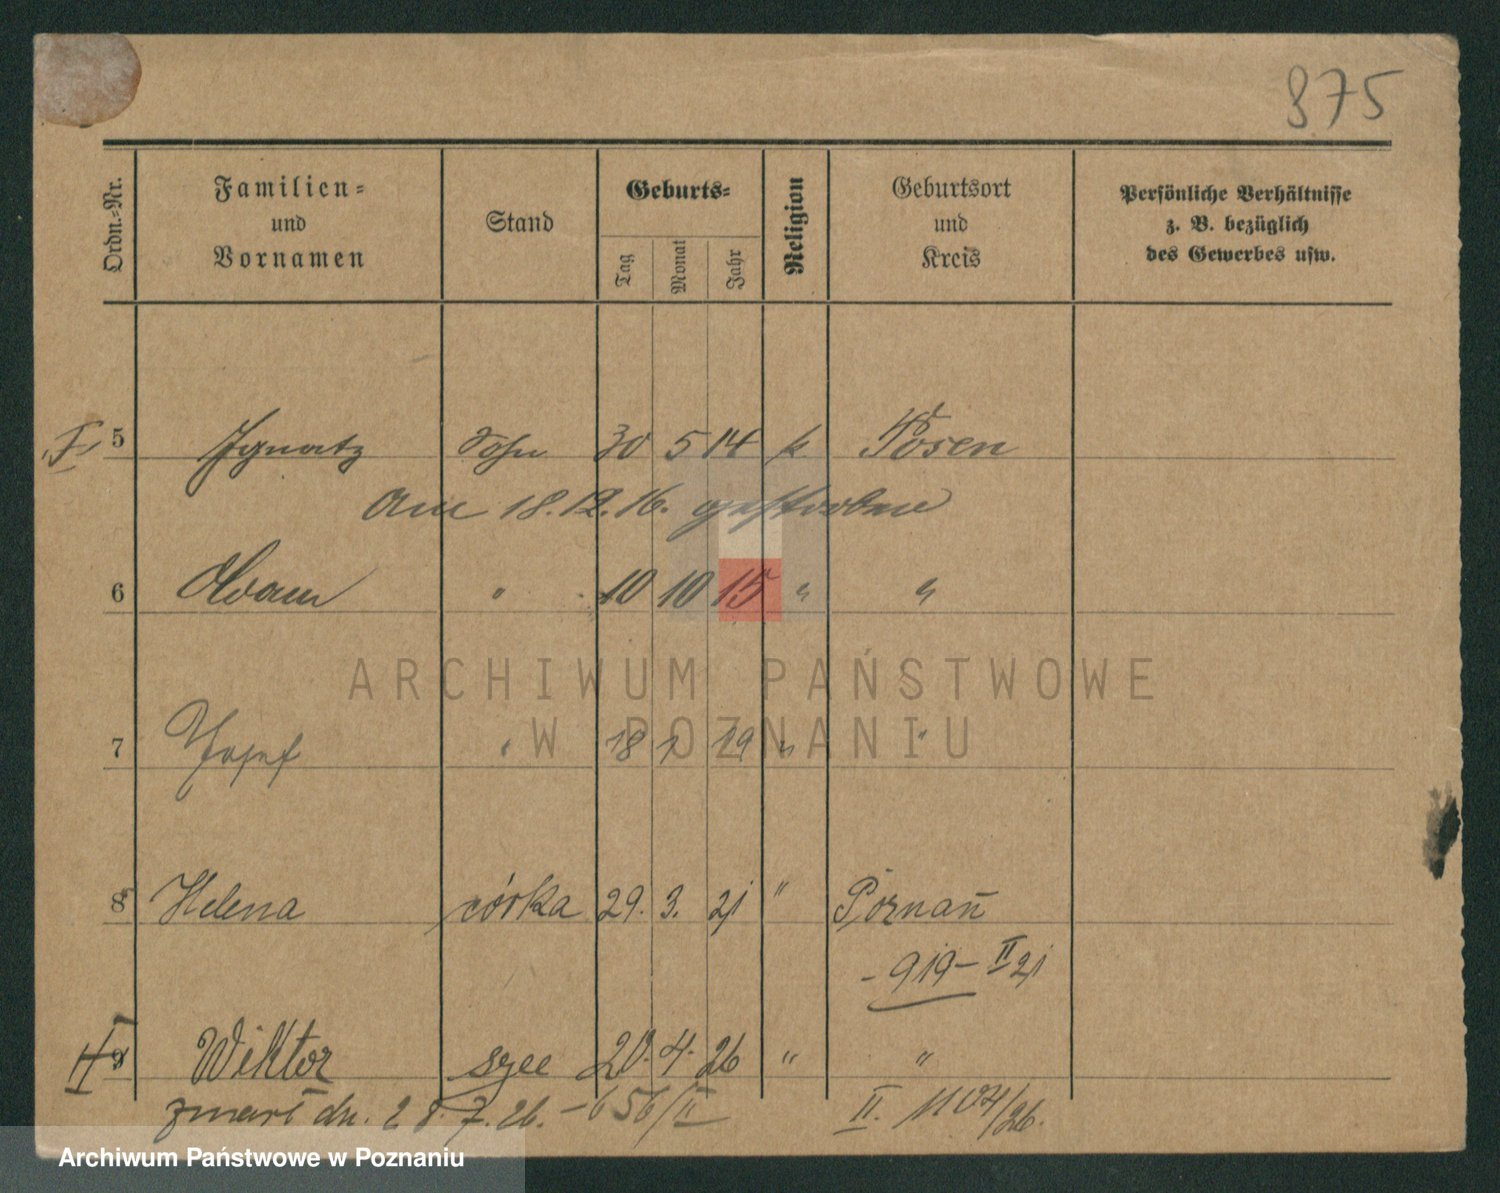 875
Ordn.-Nr. Familien- und Vornamen Stand Geburts- Tag Monat Jahr Religion Geburtsort und Kreis Persönliche Verhältnisse z. B. bezüglich des Gewerbes usw.
5 Ignatz Sohn 30 5 14 k Posen
Am 18.12.16. gestorben
6 Adam " 10 10 15 " "
ARCHIWUM PAŃSTWOWE
W POZNANIU
7 Josef " 18 1 19 " "
8 Helena córka 29. 3. 21 " Poznań
- 919 - II 21
9 Wiktor 20. 4. 26 " "
zmarł dn. 28.7.26. - 656/II II. 1104/26.
Archiwum Państwowe w Poznaniu